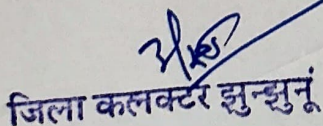 जिला कलक्टर झुन्झुनूं